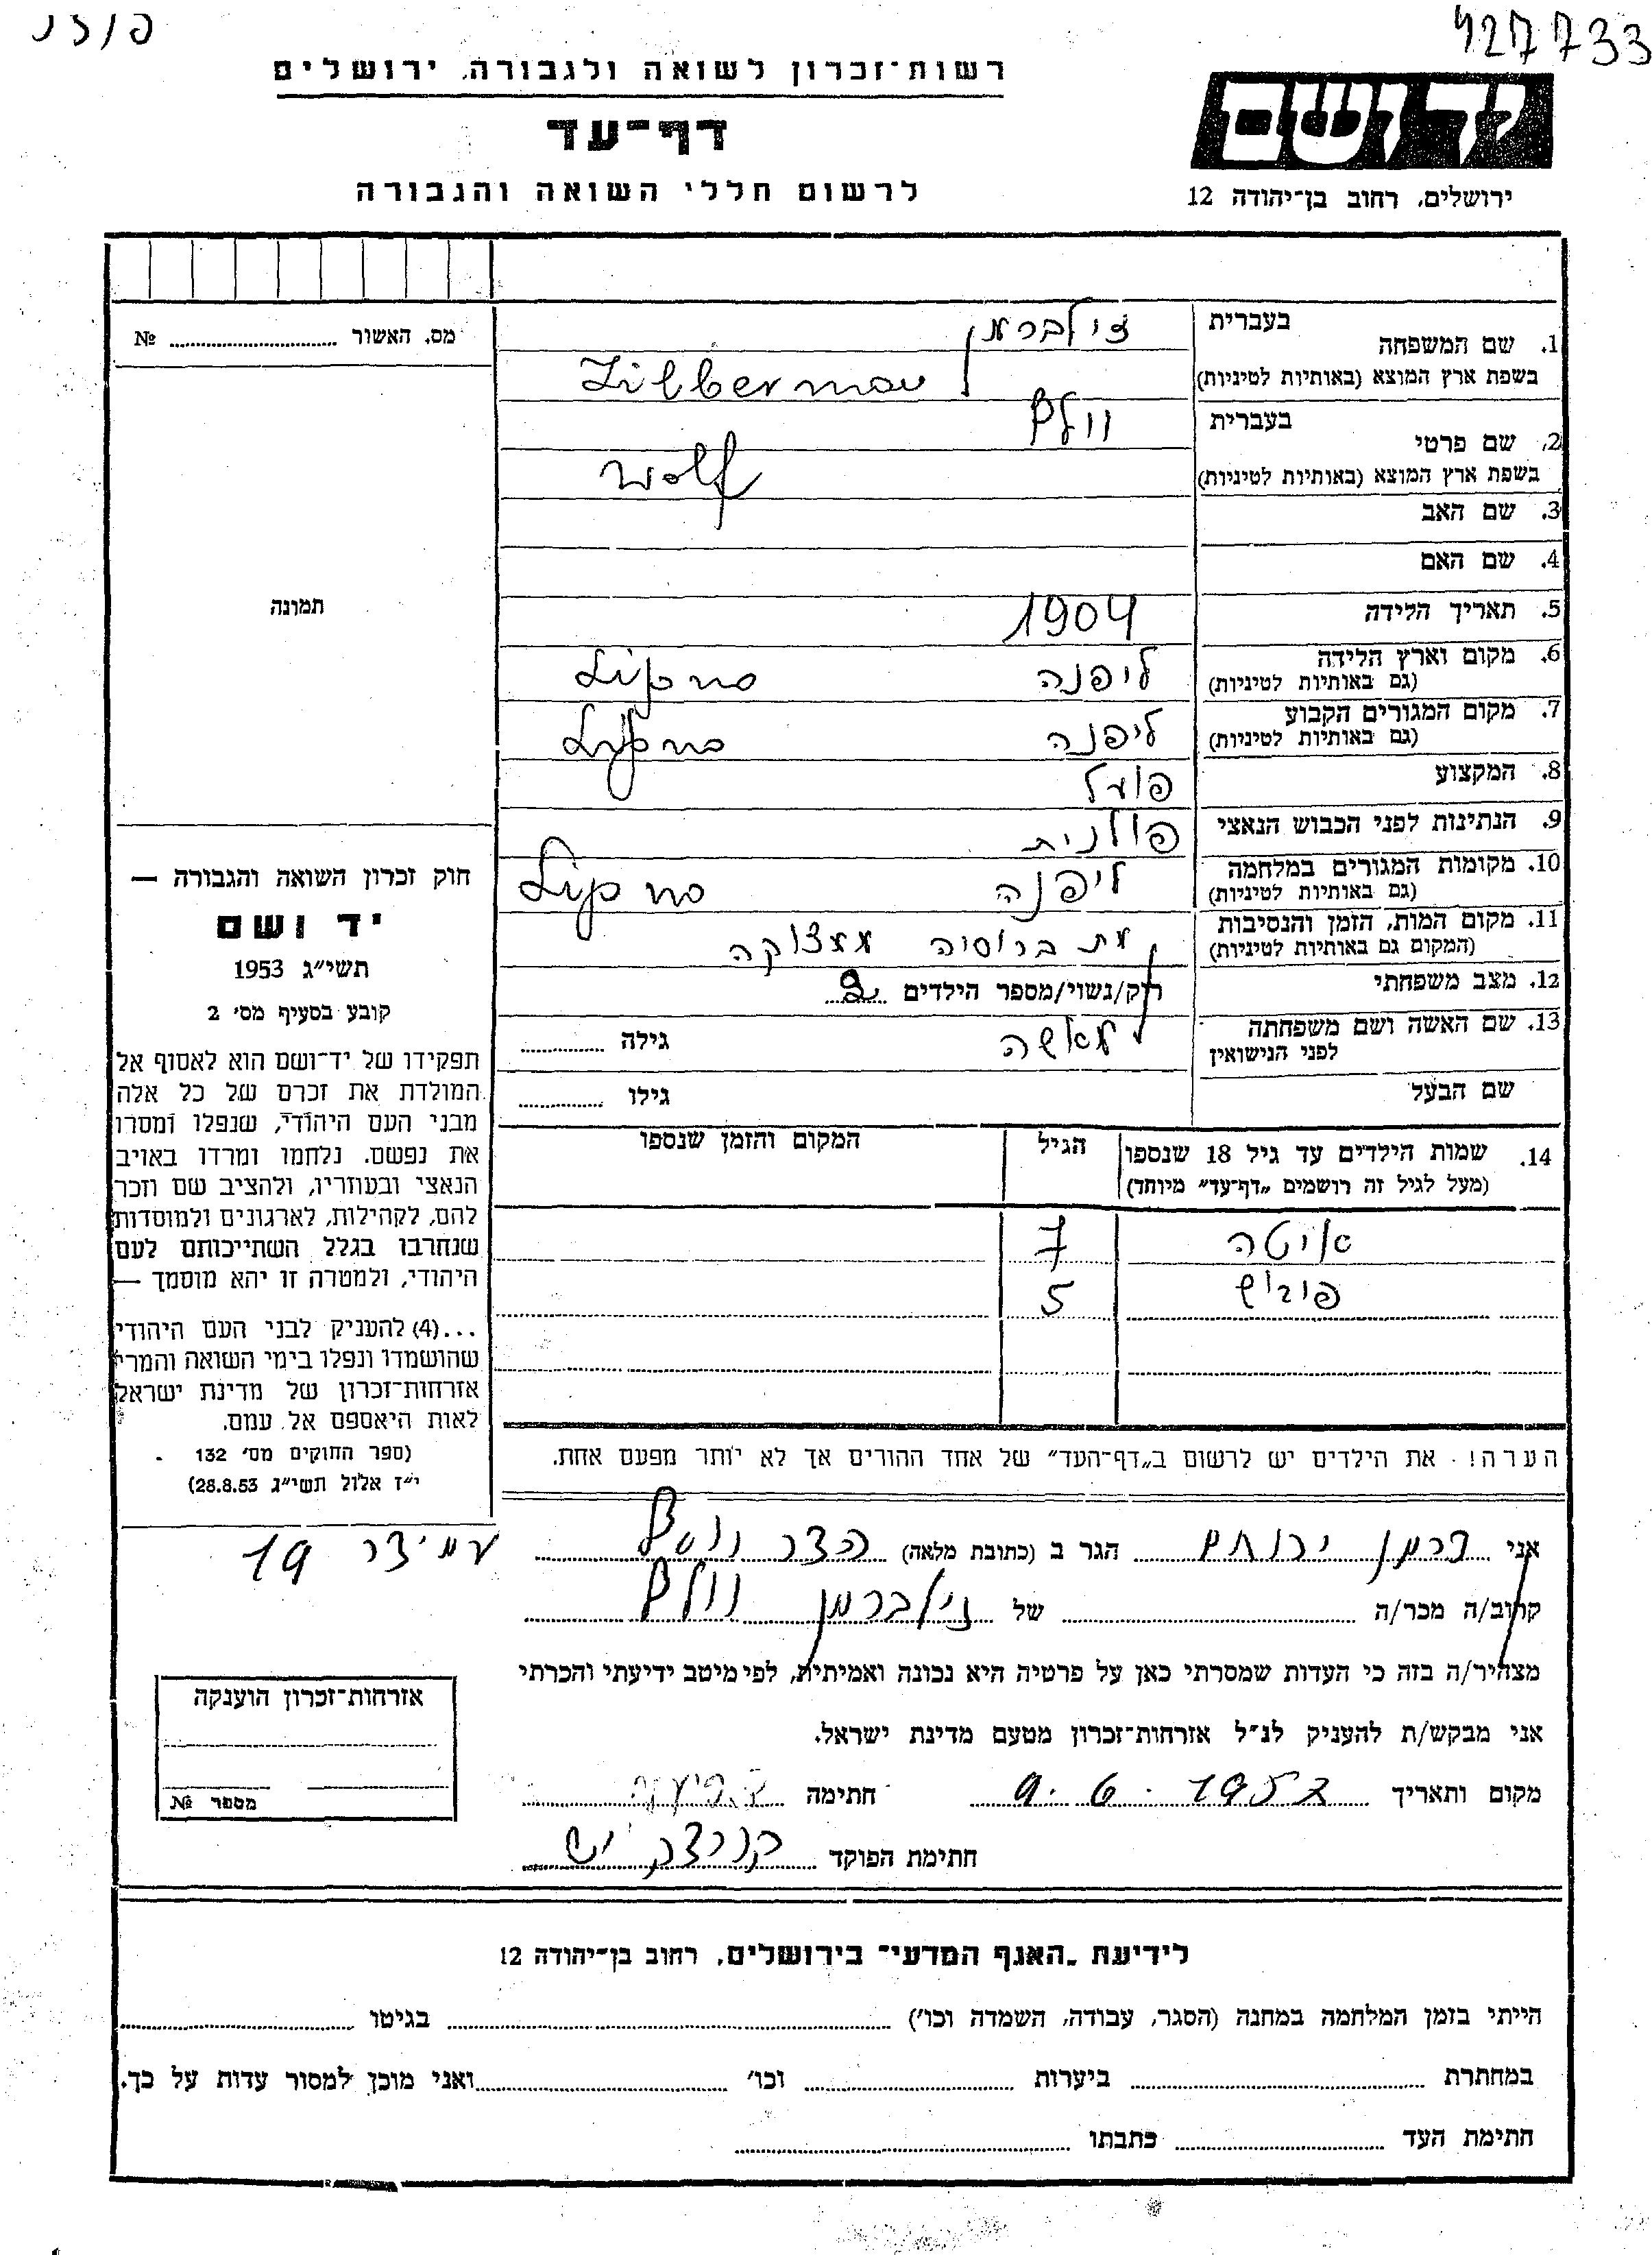 427733
רשות־זכרון לשואה ולגבורה, ירושלים
דף־עד
לרשום חללי השואה והגבורה
יד ושם
ירושלים, רחוב בן־יהודה 12
מס. האשור ........ №
תמונה
1. שם המשפחה
בעברית
זילברמן
בשפת ארץ המוצא (באותיות לטיניות)
Zilberman
2. שם פרטי
בעברית
וולף
בשפת ארץ המוצא (באותיות לטיניות)
Wolf
3. שם האב
4. שם האם
5. תאריך הלידה 1904
6. מקום וארץ הלידה ליפנה Lipno
(גם באותיות לטיניות)
7. מקום המגורים הקבוע ליפנה Lipno
(גם באותיות לטיניות)
8. המקצוע פועל
9. הנתינות לפני הכבוש הנאצי פולנית
10. מקומות המגורים במלחמה ליפנה Lipno
(גם באותיות לטיניות)
11. מקום המות, הזמן והנסיבות מת ברוסיה
(המקום גם באותיות לטיניות)
12. מצב משפחתי רוק/נשוי/מספר הילדים 2
13. שם האשה ושם משפחתה
לפני הנישואין
מאשה
גילה ........
שם הבעל
גילו ........
14. שמות הילדים עד גיל 18 שנספו הגיל המקום והזמן שנספו
(מעל לגיל זה רושמים „דף־עד" מיוחד)
איטה 7
5
הערה! את הילדים יש לרשום ב„דף־העד" של אחד ההורים אך לא יותר מפעם אחת.
חוק זכרון השואה והגבורה —
יד ושם
תשי"ג 1953
קובע בסעיף מס' 2
תפקידו של יד־ושם הוא לאסוף אל
המולדת את זכרם של כל אלה
מבני העם היהודי, שנפלו ומסרו
את נפשם, נלחמו ומרדו באויב
הנאצי ובעוזריו, ולהציב שם וזכר
להם, לקהילות, לארגונים ולמוסדות
שנחרבו בגלל השתייכותם לעם
היהודי, ולמטרה זו יהא מוסמך —
...(4) להעניק לבני העם היהודי
שהושמדו ונפלו בימי השואה והמרי
אזרחות־זכרון של מדינת ישראל
לאות היאספם אל עמם.
(ספר החוקים מס' 132
י"ז אלול תשי"ג 28.8.53)
אני ירוחם הגר ב (כתובת מלאה) 19
קרוב/ה מכר/ה ........ של זילברמן וולף
מצהיר/ה בזה כי העדות שמסרתי כאן על פרטיה היא נכונה ואמיתית, לפי מיטב ידיעתי והכרתי
אני מבקש/ת להעניק לנ"ל אזרחות־זכרון מטעם מדינת ישראל.
מקום ותאריך 9.6.1957 חתימה
חתימת הפוקד
אזרחות־זכרון הוענקה
מספר №
לידיעת „האגף המדעי" בירושלים, רחוב בן־יהודה 12
הייתי בזמן המלחמה במחנה (הסגר, עבודה, השמדה וכו') ........ בגיטו ........
במחתרת ........ ביערות ........ וכו' ........ ואני מוכן למסור עדות על כך.
חתימת העד ........ כתבתו ........